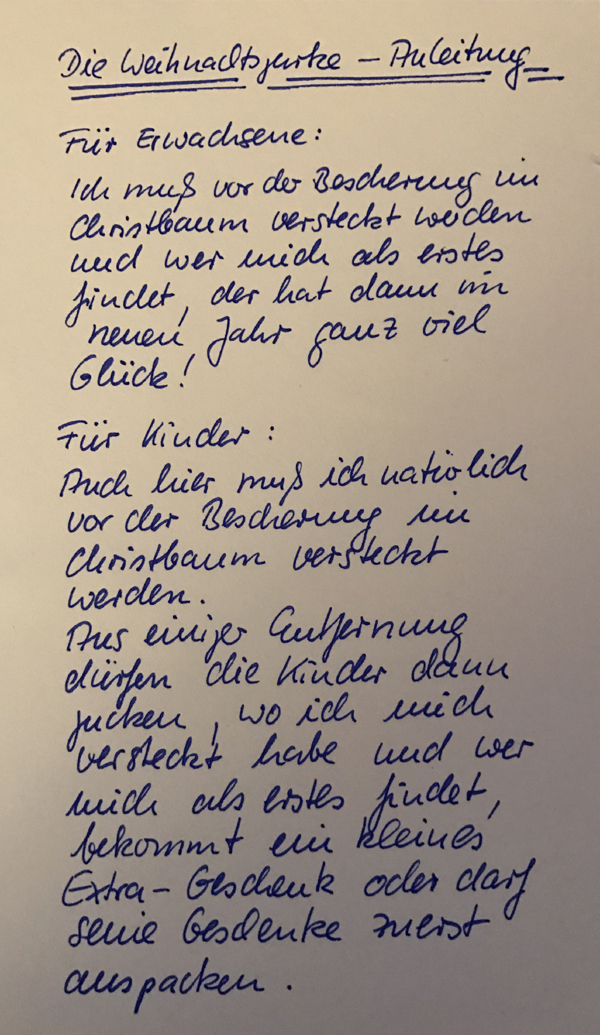 Die Weihnachtsgurke – Anleitung
Für Erwachsene:
Ich muß vor der Bescherung im
Christbaum versteckt werden
und wer mich als erstes
findet, der hat dann im
neuen Jahr ganz viel
Glück!
Für Kinder:
Auch hier muß ich natürlich
vor der Bescherung im
Christbaum versteckt
werden.
Aus einiger Entfernung
dürfen die Kinder dann
gucken, wo ich mich
versteckt habe und wer
mich als erstes findet,
bekommt ein kleines
Extra-Geschenk oder darf
seine Geschenke zuerst
auspacken.